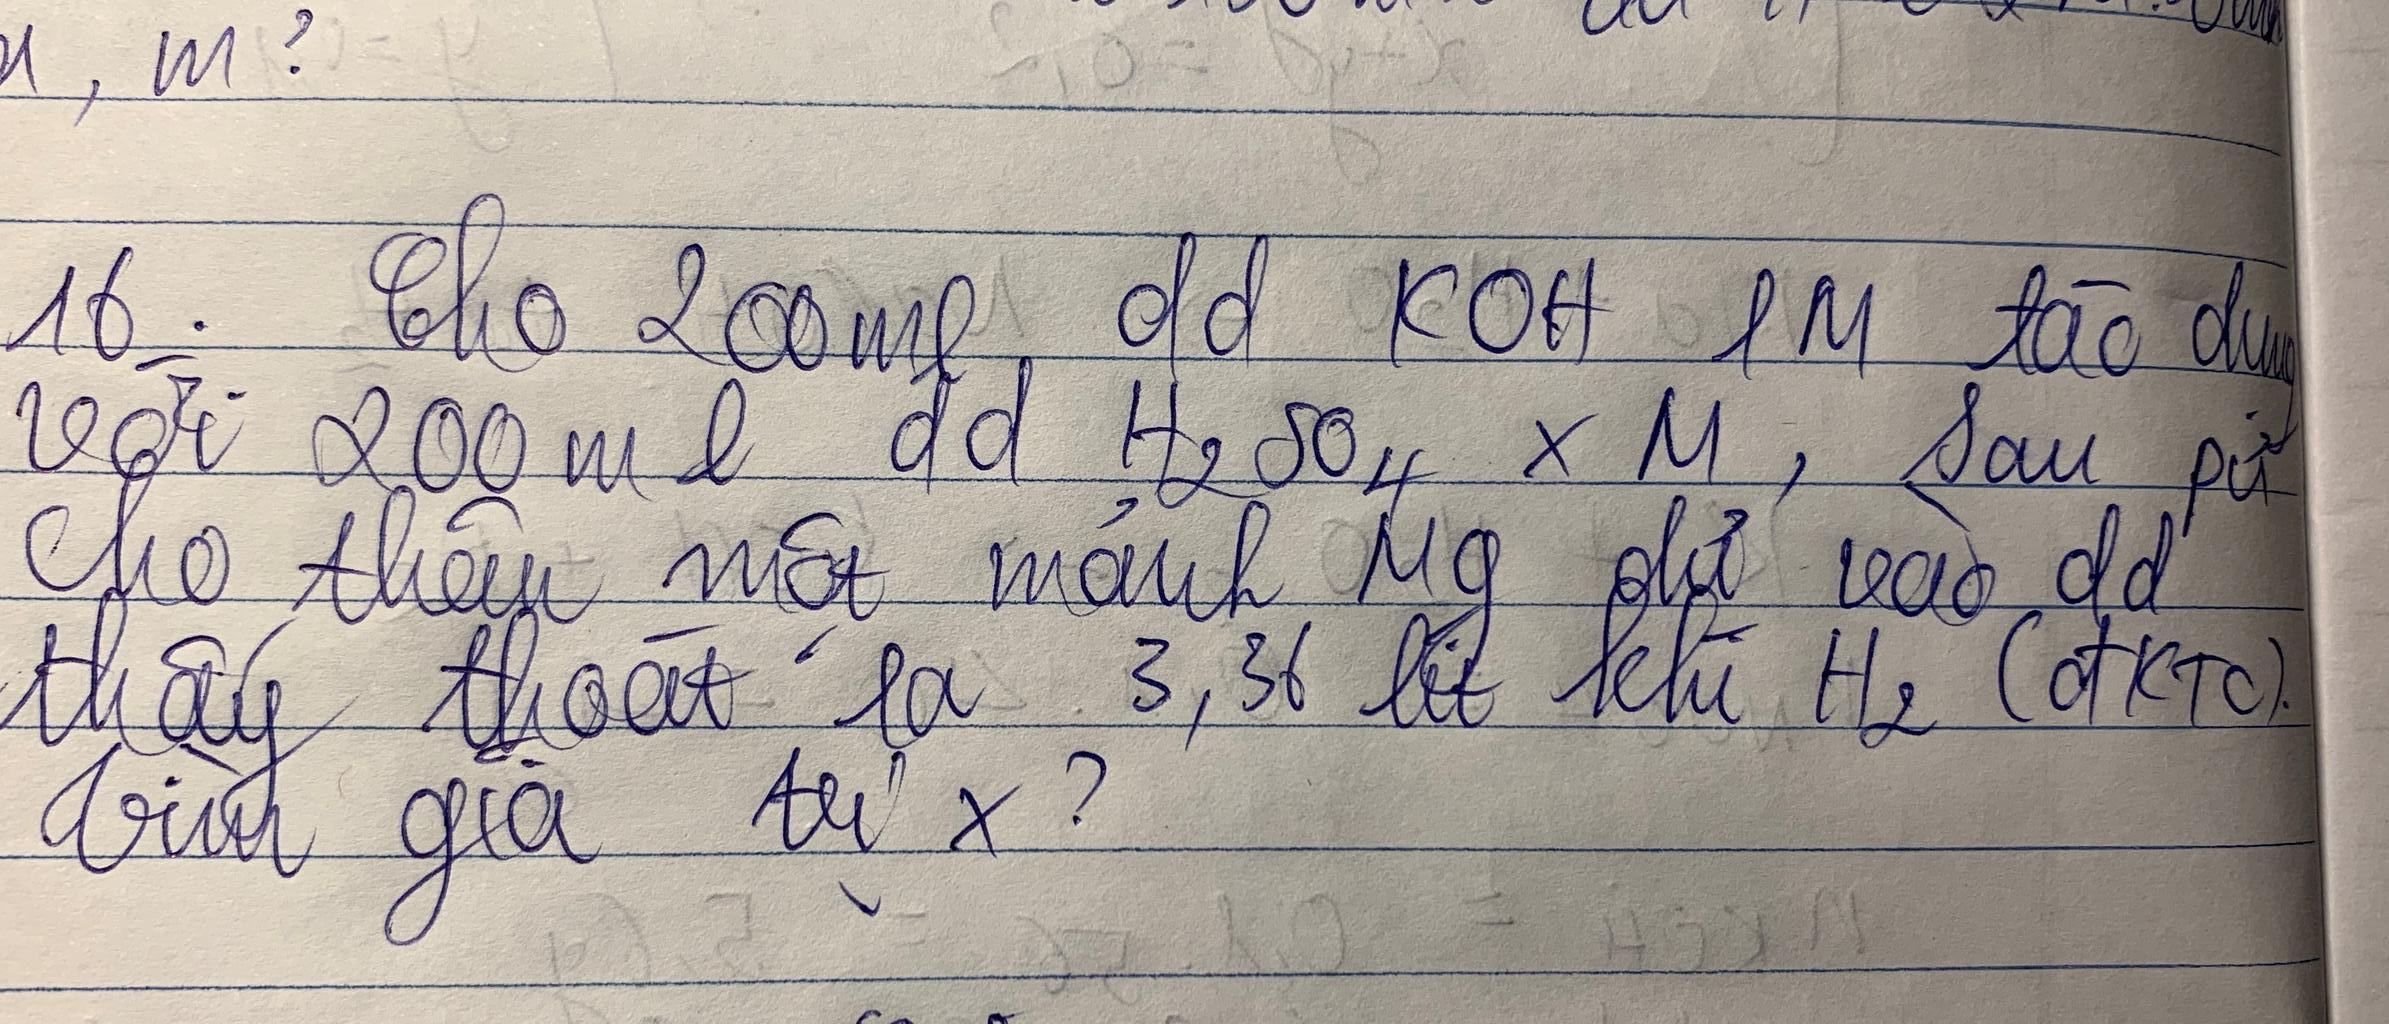 x, m?
16. Cho 200ml dd KOH 1M tác dụng
với 200ml dd H2SO4 x M, sau pứ
cho thêm một mảnh Mg dư vào dd
thấy thoát ra 3,36 lít khí H2 (đktc).
Tính giá trị x?